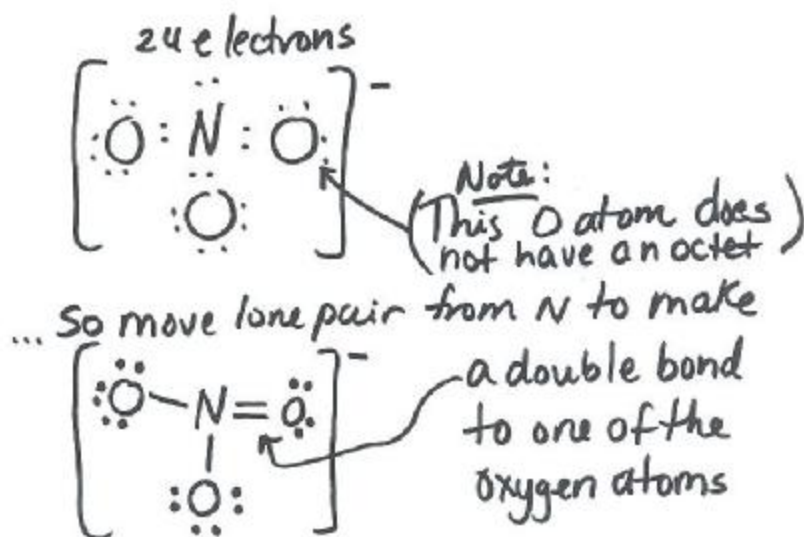 24 electrons
[:O:N:O:]-
O
Note:
(This O atom does
not have an octet)
... So move lone pair from N to make
a double bond
to one of the
oxygen atoms
[O-N=O]-
O